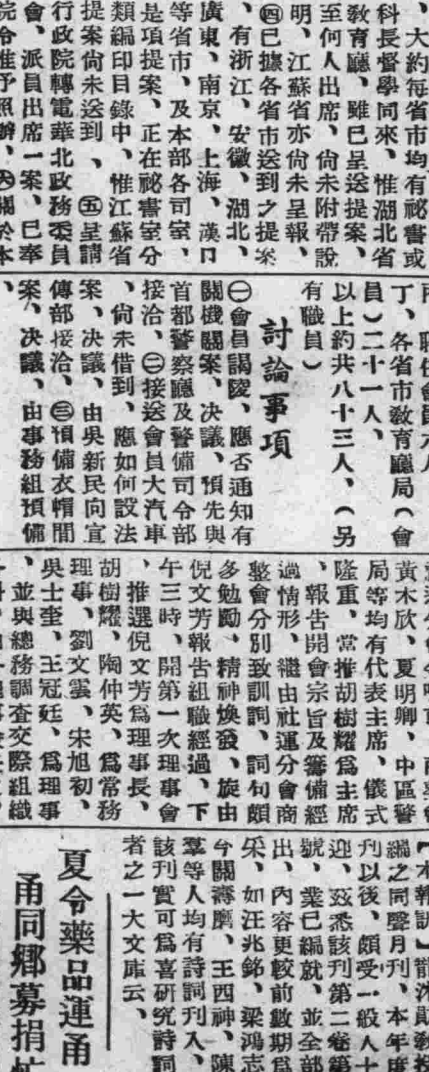 、大約每省市均有祕書或
科長督學同來、惟湖北省
教育廳、雖已呈送提案、
至何人出席、尙未附帶說
明、江蘇省亦尙未呈報、
㊃已據各省市送到之提案
、有浙江、安徽、湖北、
廣東、南京、上海、漢口
等省市、及本部各司室、
是項提案、正在祕書室分
類編印目錄中、惟江蘇省
提案尙未送到、㊄呈請
行政院轉電華北政務委員
會、派員出席一案、已奉
院令准予照辦、㊅關於本
丁、各省市敎育廳局（會
員）二十一人、
以上約共八十三人、（另
有職員）
討論事項
㊀會員謁陵、應否通知有
關機關案、决議、預先與
首都警察廳及警備司令部
接洽、㊁接送會員大汽車
、尙未借到、應如何設法
案、决議、由吳新民向宣
傳部接洽、㊂預備衣帽間
案、决議、由事務組預備
黃木欣、夏明卿、中區警
局等均有代表主席、儀式
隆重、當推胡樹耀爲主席
、報告開會宗旨及籌備經
過情形、繼由社運分會商
整會分別致訓詞、詞句頗
多勉勵、精神煥發、旋由
倪文芳報告組職經過、下
午三時、開第一次理事會
、推選倪文芳爲理事長、
胡樹耀、陶仲英、爲常務
理事、劉文雲、宋旭初、
吳士奎、王冠廷、爲理事
、並與總務調査交際組織
編之同聲月刊、本年度
刊以後、頗受一般人士
迎、茲悉該刊第二卷第
號、業已編就、並全部
出、內容更較前數期爲
采、如汪兆銘、梁鴻志
今關壽麿、王西神、陳
羣等人均有詩詞刊入、
該刊實可爲喜硏究詩詞
者之一大文庫云、
夏令藥品運甬
甬同鄕募捐忙